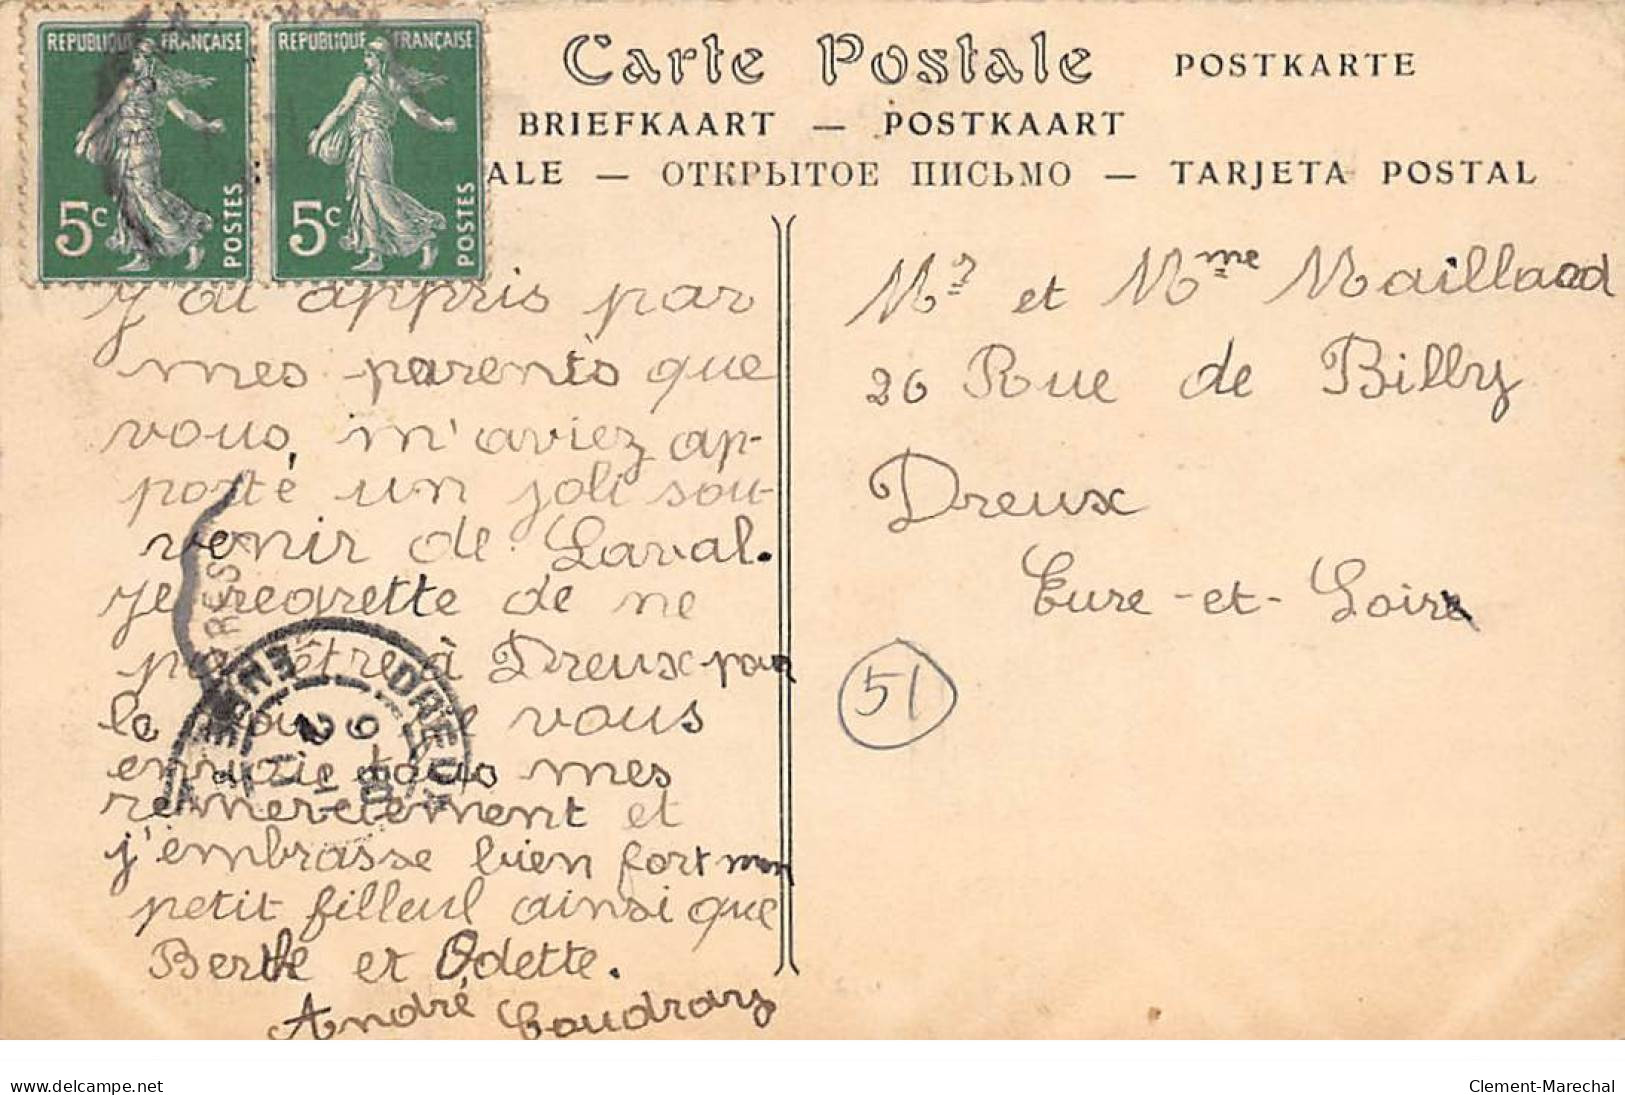 REPUBLIQUE FRANÇAISE
5c POSTES
REPUBLIQUE FRANÇAISE
5c POSTES
Carte Postale POSTKARTE
BRIEFKAART — POSTKAART
ALE — ОТКРЫТОЕ ПИСЬМО — TARJETA POSTAL
J'ai appris par
mes parents que
vous, m'aviez ap-
porté un joli sou-
venir de Laval.
Je regrette de ne
pas être à Dreux par
le vous
envoie tous mes
remerciement et
j'embrasse bien fort mon
petit filleul ainsi que
Berthe et Odette.
André Coudray
DREUX
Mr et Mme Maillard
26 Rue de Billy
Dreux
Eure-et-Loire
51
delcampe.net
Clement-Marechal